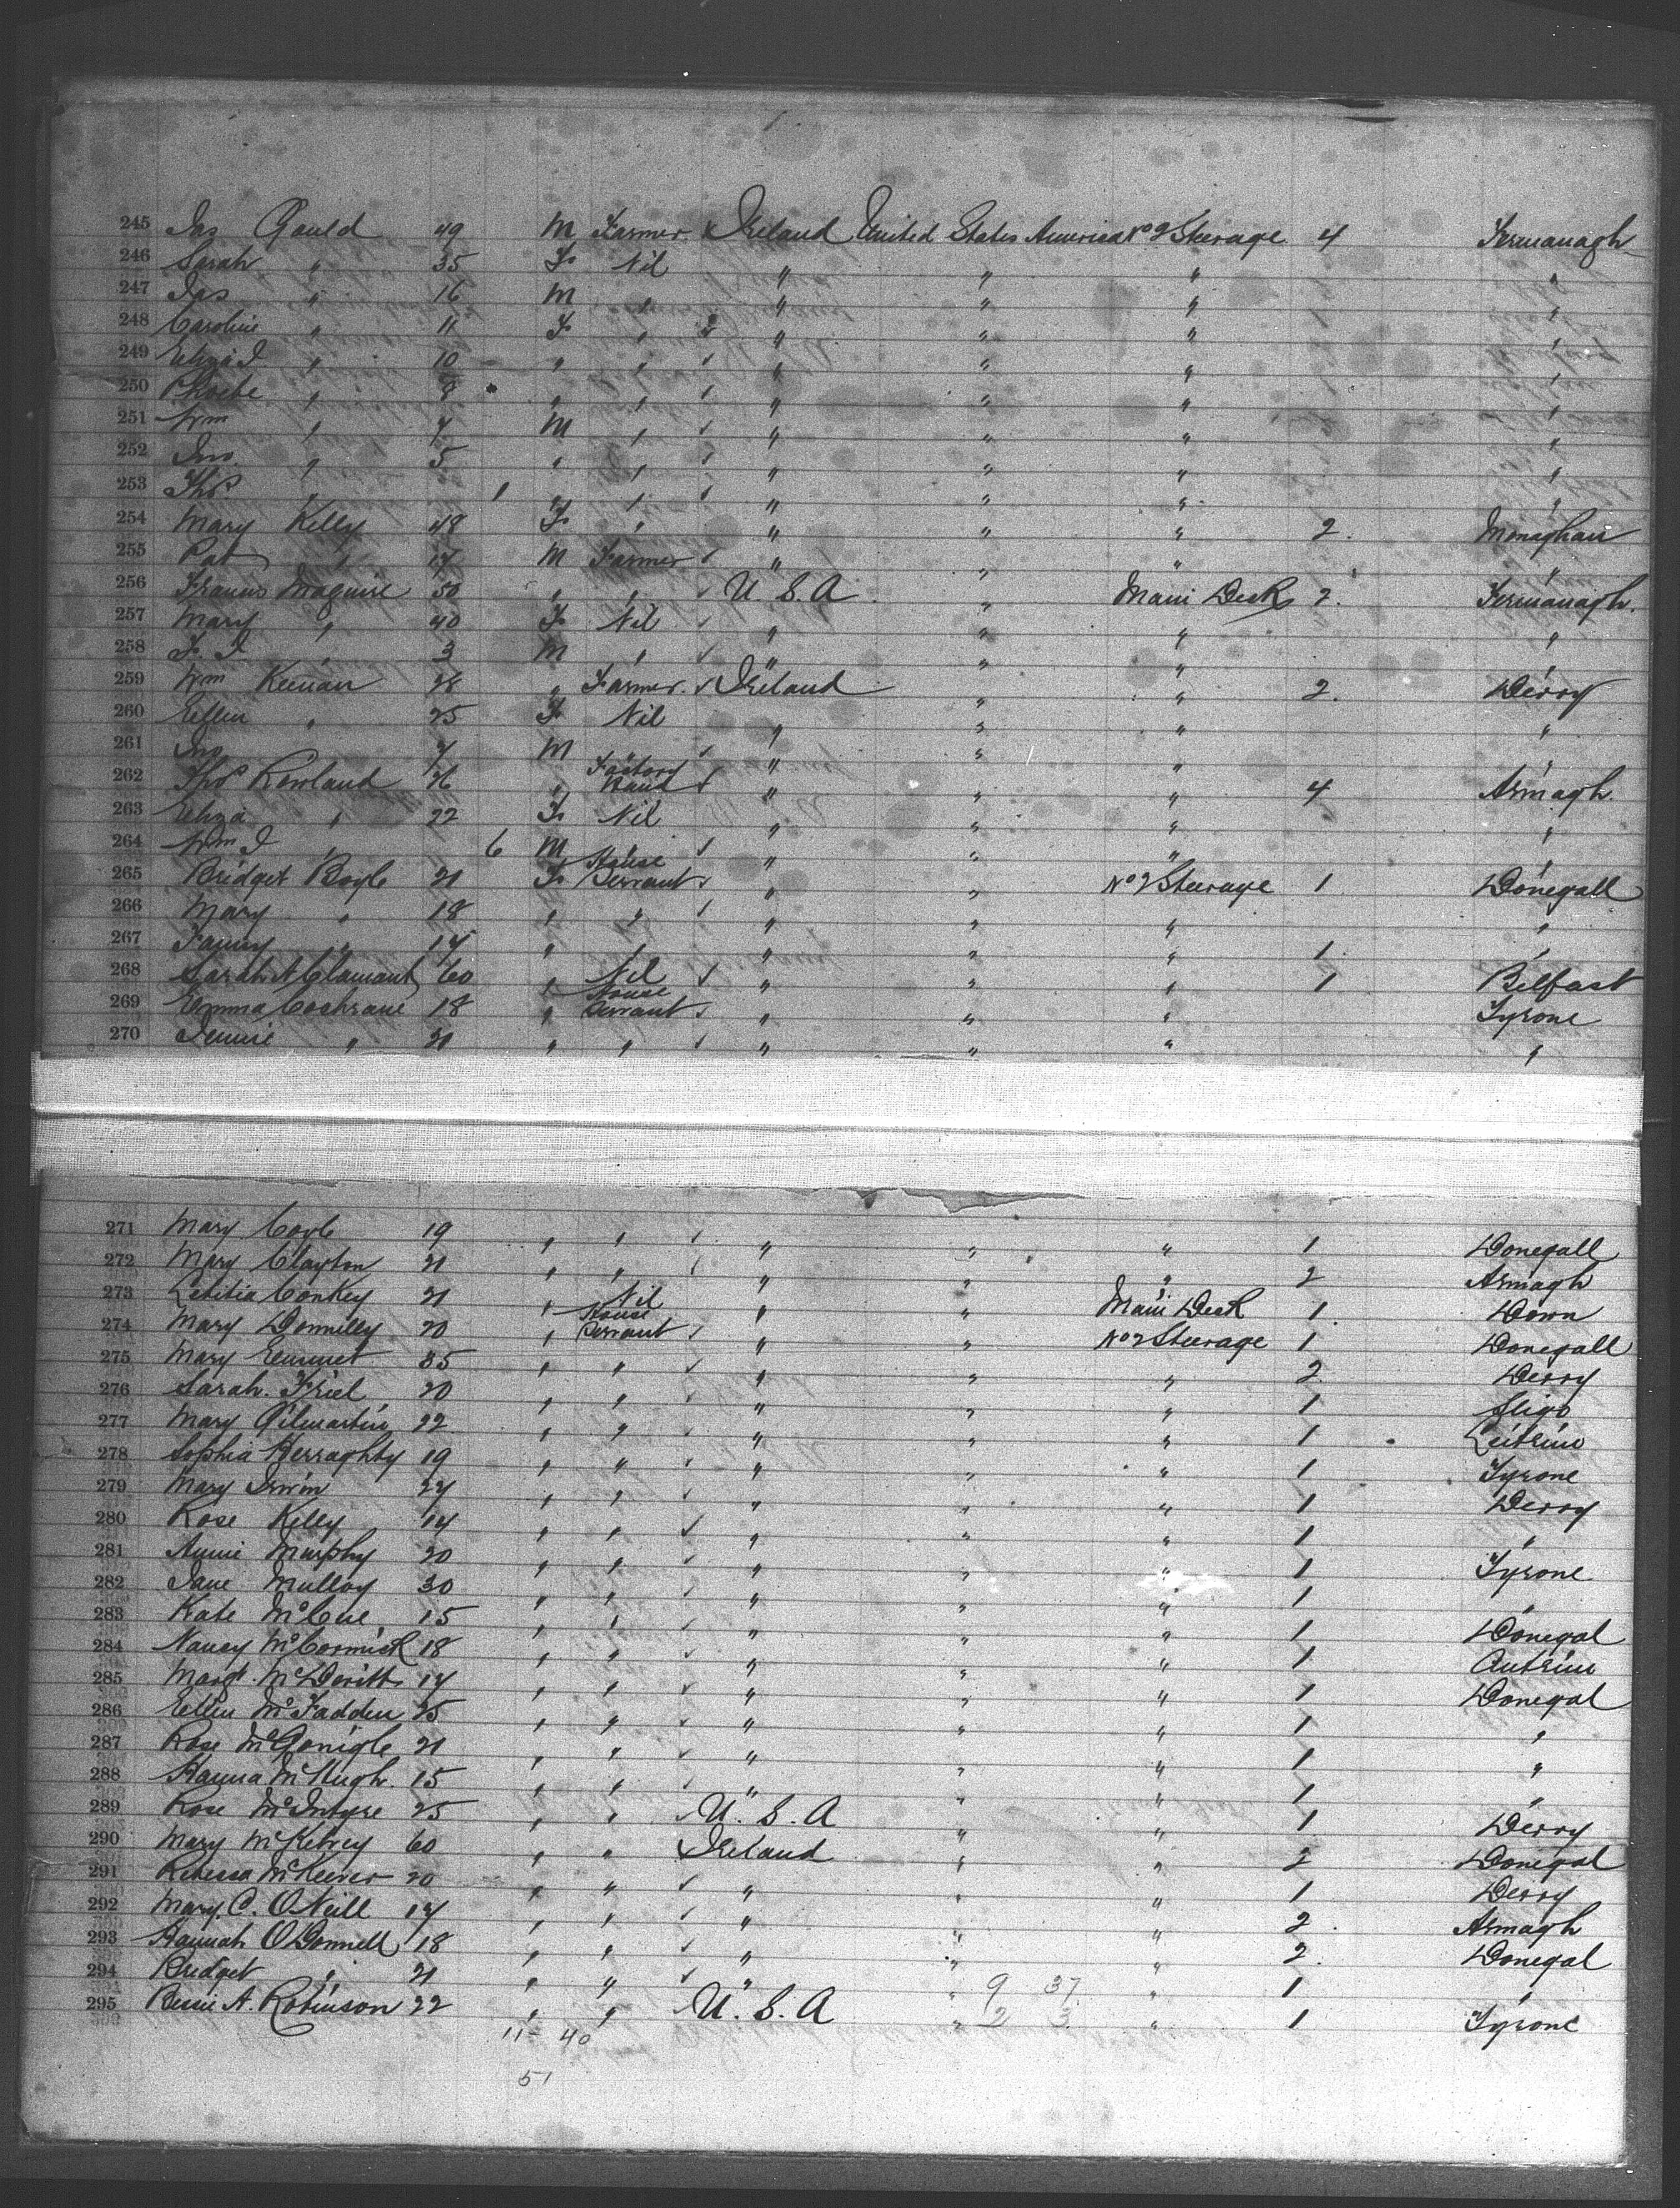 245 Jas Gauld 49 M Farmer Ireland United States America No 2 Steerage 4 Fermanagh
246 Sarah " 35 F Nil " " " "
247 Jas " 16 M " " " " "
248 Caroline " 11 F " " " " "
249 Eliza J " 10 " " " " " "
250 Phoebe " 8 " " " " " "
251 Wm " 7 M " " " " "
252 Jno " 5 " " " " " "
253 Thos " 1 " " " " "
254 Mary Kelly 48 F " " " " 2 Monaghan
255 Pat " 17 M Farmer " " " "
256 Francis Maguire 50 " " U.S.A " Main Deck 2 Fermanagh
257 Mary " 40 F Nil " " " "
258 F. J. " 3 M " " " " "
259 Wm Keenan 28 " Farmer Ireland " " 2 Derry
260 Ellen " 25 F Nil " " " "
261 Jno " 7 M " " " " "
262 Thos Rowland 26 " Factory Hand " " " 4 Armagh
263 Eliza " 22 F Nil " " " "
264 Wm J " 6 M " " " "
265 Bridget Boyle 21 F House Servant " " No 2 Steerage 1 Donegall
266 Mary " 18 " " " " " "
267 Fanny " 14 " " " " " 1 "
268 Sarah 60 " Nil " " " 1 Belfast
269 Emma Cochrane 18 " House Servant " " " Tyrone
270 Jennie " 21 " " " " " "
271 Mary Coyle 19 " " " " " 1 Donegall
272 Mary Clayton 21 " " " " " 2 Armagh
273 Letitia Conkey 21 " Nil " " Main Deck 1 Down
274 Mary Donnelly 20 " House Servant " " No 2 Steerage 1 Donegall
275 Mary Emmet 35 " " " " " 2 Derry
276 Sarah Friel 20 " " " " " 1 Sligo
277 Mary Gilmartin 22 " " " " " 1 Leitrim
278 Sophia Herraghty 19 " " " " " 1 Tyrone
279 Mary Irwin 27 " " " " " 1 Derry
280 Rose Kelly 14 " " " " " 1 "
281 Annie Murphy 20 " " " " " 1 Tyrone
282 Jane Mulloy 30 " " " " " 1 "
283 Kate McCue 15 " " " " " 1 Donegal
284 Nancy McCormick 18 " " " " " 1 Antrim
285 Margt. McDevitt 17 " " " " " 1 Donegal
286 Ellen McFadden 25 " " " " " 1 "
287 Rose McGonigle 21 " " " " " 1 "
288 Hanna McHugh 15 " " " " " 1 "
289 Rose McIntyre 25 " " U.S.A " " 1 Derry
290 Mary McKelvey 60 " " Ireland " " 2 Donegal
291 Rebecca McKeever 20 " " " " " 1 Derry
292 Mary C. O'Neill 17 " " " " " 2 Armagh
293 Hannah O'Donnell 18 " " " " " 2 Donegal
294 Bridget " 21 " " " " 9 37 " 1 "
295 Bessie A. Robinson 22 " " U.S.A " 2 3 " 1 Tyrone
11 - 40
51